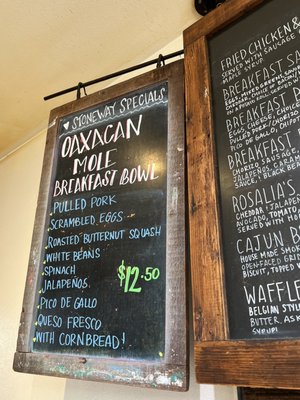 ♥ STONEWAY SPECIALS
OAXACAN
MOLE
BREAKFAST BOWL
• PULLED PORK
• SCRAMBLED EGGS
• ROASTED BUTTERNUT SQUASH
• WHITE BEANS
• SPINACH
• JALAPEÑOS
$12.50
• PICO DE GALLO
• QUESO FRESCO
WITH CORNBREAD!
FRIED CHICKEN &
SERVED WITH
MAPLE SYRUP
BREAKFAST SA
BREAKFAST B
EGGS, CHEESE,
PULLED PORK/CHORIZO
PICO DE GALLO,
BREAKFAST
CHORIZO SAUSAGE,
JALAPEÑOS,
SAUCE, BLACK BE
ROSALIA'S
CHEDDAR, JALAPEÑO
AVOCADO, TOMATO
SERVED WITH
CAJUN B
HOUSE MADE
OPEN-FACED
BISCUIT, TOPPED
WAFFLE
BELGIAN STYLE
BUTTER. ASK
SYRUP!